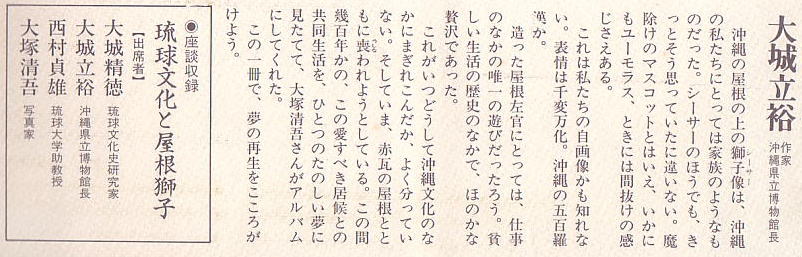 大城立裕
作家
沖縄県立博物館長
沖縄の屋根の上の獅子像は、沖縄
シーサー
の私たちにとっては家族のようなも
のだった。シーサーのほうでも、き
っとそう思っていたに違いない。魔
除けのマスコットとはいえ、いかに
もユーモラス、ときには間抜けの感
じさえある。
これは私たちの自画像かも知れな
い。表情は千変万化。沖縄の五百羅
漢か。
造った屋根左官にとっては、仕事
のなかの唯一の遊びだったろう。貧
しい生活の歴史のなかで、ほのかな
贅沢であった。
これがいつどうして沖縄文化のな
かにまぎれこんだか、よく分ってい
ない。そしていま、赤瓦の屋根とと
もに喪われようとしている。この間
幾百年かの、この愛すべき居候との
共同生活を、ひとつのたのしい夢に
見たてて、大塚清吾さんがアルバム
にしてくれた。
この一冊で、夢の再生をこころが
けよう。
◉座談収録
琉球文化と屋根獅子
【出席者】
大城精徳 琉球文化史研究家
大城立裕 沖縄県立博物館長
西村貞雄 琉球大学助教授
大塚清吾 写真家